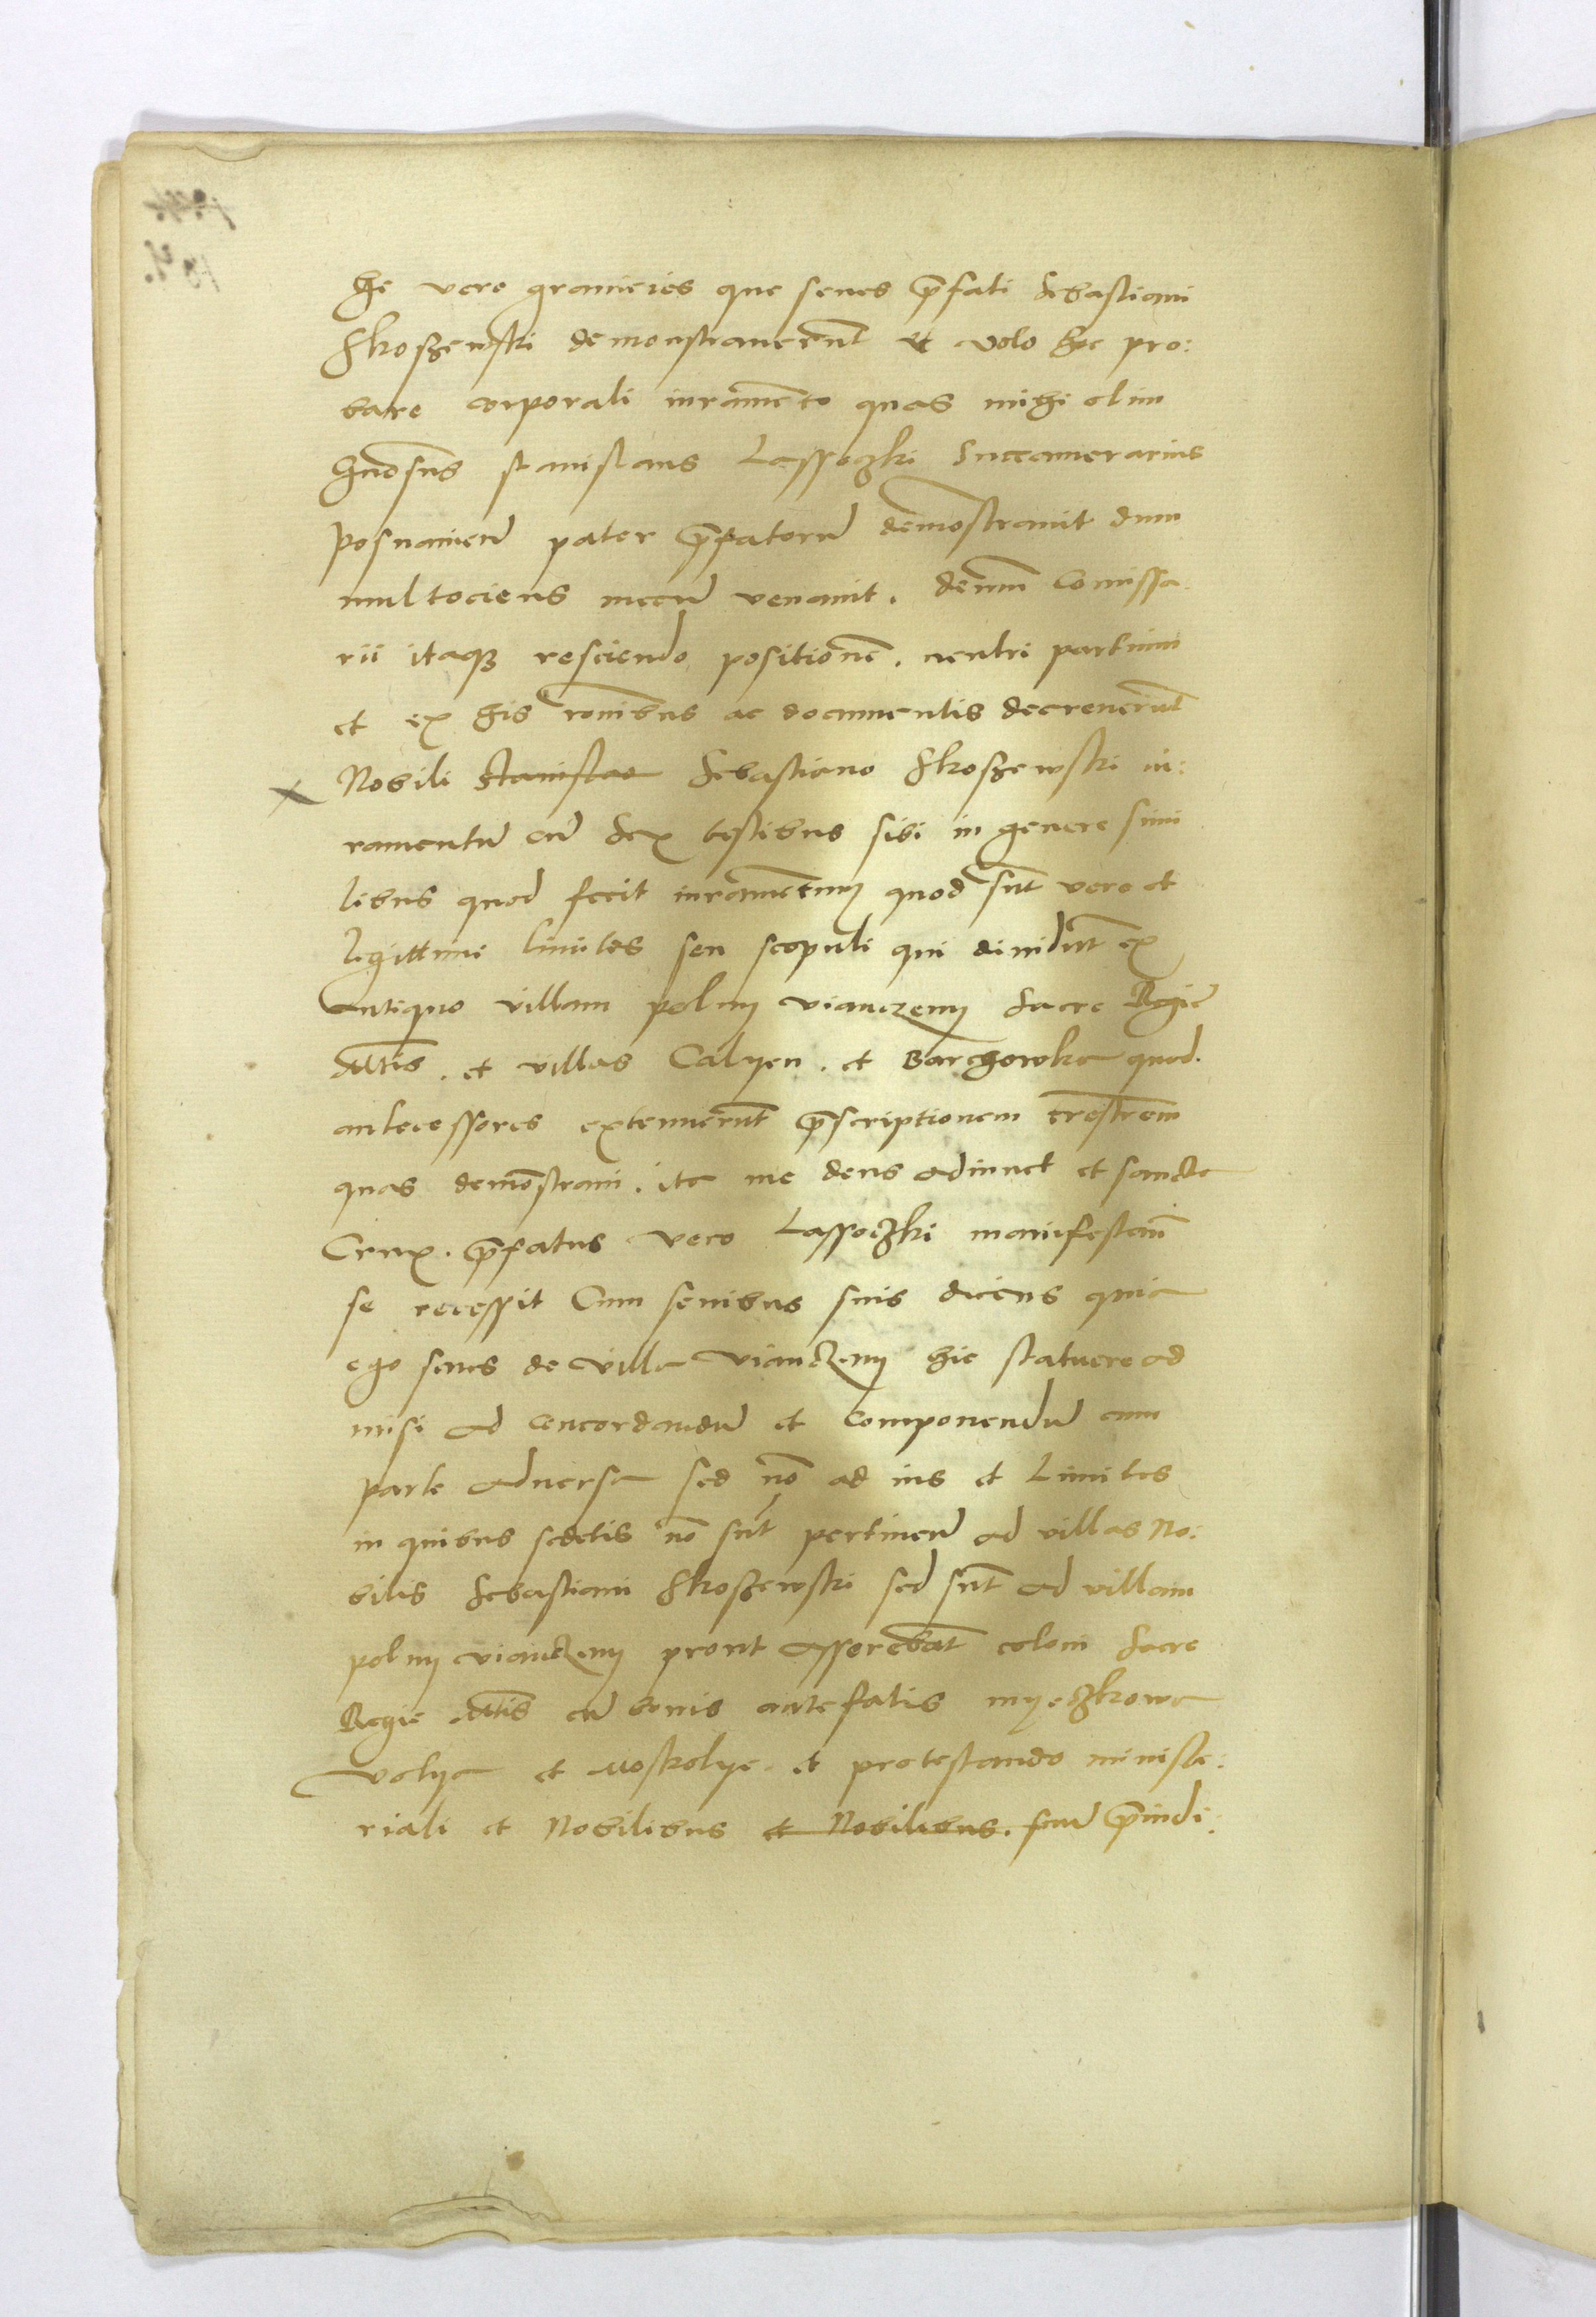 he vero granicies que senes p̄fati Sebastiani
Skoszewski demonstraverūt et volo hec pro:
bare corporali iuramēto quas mihi olim
Gn̄osus Stanislaus Lassoczki Succamerarius
Posnanień pater p̄fatorū demōstravit dum
multociens mecū venavit. demū Comissa
rii itaqʒ resciendo positionē. neutri partium
et ex his rōnibus ac documentis decreverūt
Nobili Stanislao Sebastiano Skoszewski iu:
ramentū cū sex testibus sibi in genere simi
libus quod fecit iuramētum quod sūt vere et
legittimi limites seu scopuli qui dividūt ex
antiquo villam polny viaczeny Sacre Regie
Mtis. et villas Calyen. et Barchowka quod.
antecessores extenuerūt p̄scriptionem trēstrem
quas demōstravi. ita me deus adiuvet et sancta
Crux. p̄fatus vero Lassoczki manifestavī
se recessit Cum senibus suis dicens quia
ego senes de villa viączeny hic statuere ad
misi ad concordandū et componendū cum
parte adversa sed nō ad ius et Limites
in quibus sedetis nō sūt pertineń ad villas No:
bilis Sebastiani Skoszewski sed sūt ad villam
polny viączeny prout asserebāt coloni Sacre
Regie Mtis cū bonis antefatis myeczkowa
volya et Moskolye. et protestando ministe:
riali et Nobilibus et Nobilibus.